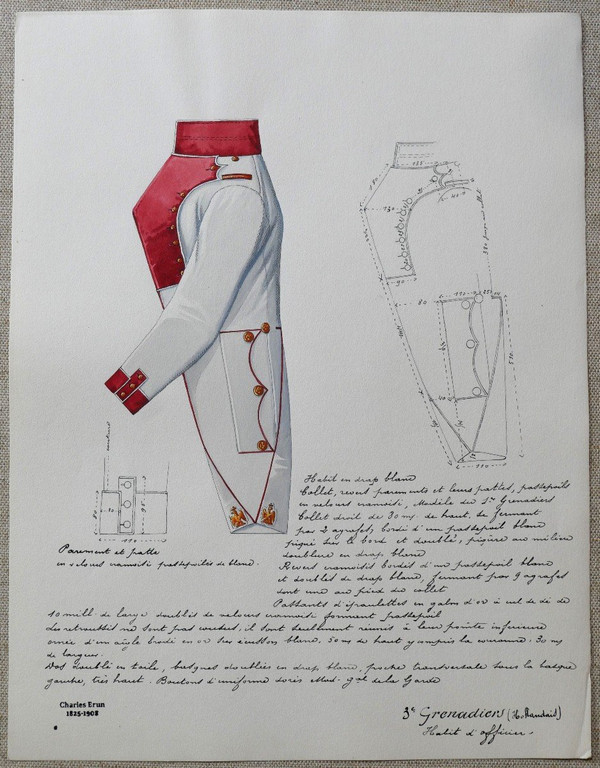 135
180
130
40
90
80
110
25
110
90
110
Habit en drap blanc
Collet, revers parements et leurs pattes, passepoils
en velours cramoisi, Modèle du 1er Grenadiers
Collet droit de 30 m/m de haut, se fermant
par 2 agrafes, bordé d'un passepoil blanc
piqué sur le bord et doublé, piqûre au milieu
doublure en drap blanc
Parement et patte
en velours cramoisi passepoilés de blanc.
Revers cramoisis bordés d'un passepoil blanc
et doublés de drap blanc, fermant par 9 agrafes
dont une au pied du collet
Passants d'épaulettes en galon d'or à cul de dé de
10 mill. de large doublés de velours cramoisi formant passepoil
Les retroussis ne sont pas cousus, il sont seulement réunis à leur pointe inférieure
ornée d'un aigle brodé en or sur écusson blanc. 50 m/s de haut y compris la couronne. 30 m/s
de largeur.
Dos doublé en toile, basques doublées en drap blanc, poche transversale sous la basque
gauche, très haut. Boutons d'uniforme dorés Mod. gal de la Garde
Charles Brun
1825-1908
3e Grenadiers (Hollandais)
Habit d'officier.